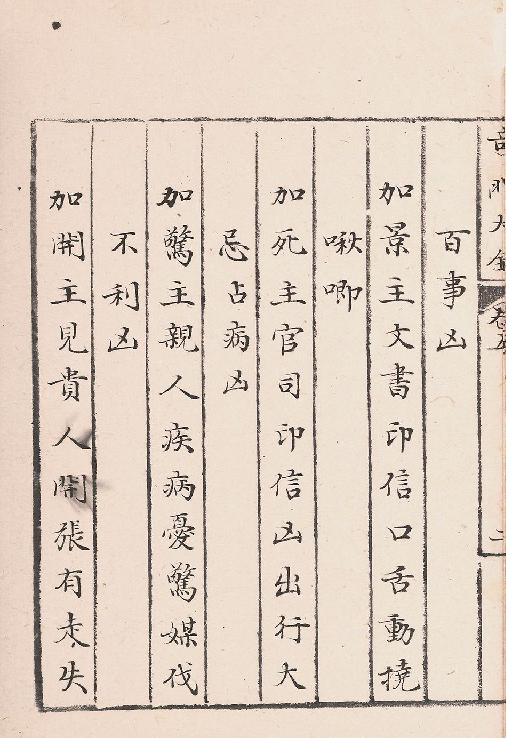 百事凶
加景主文書印信口舌動撓
啾唧
加死主官司印信凶出行大
忌占病凶
加驚主親人疾病憂驚媒伐
不利凶
加開主見貴人開張有走失